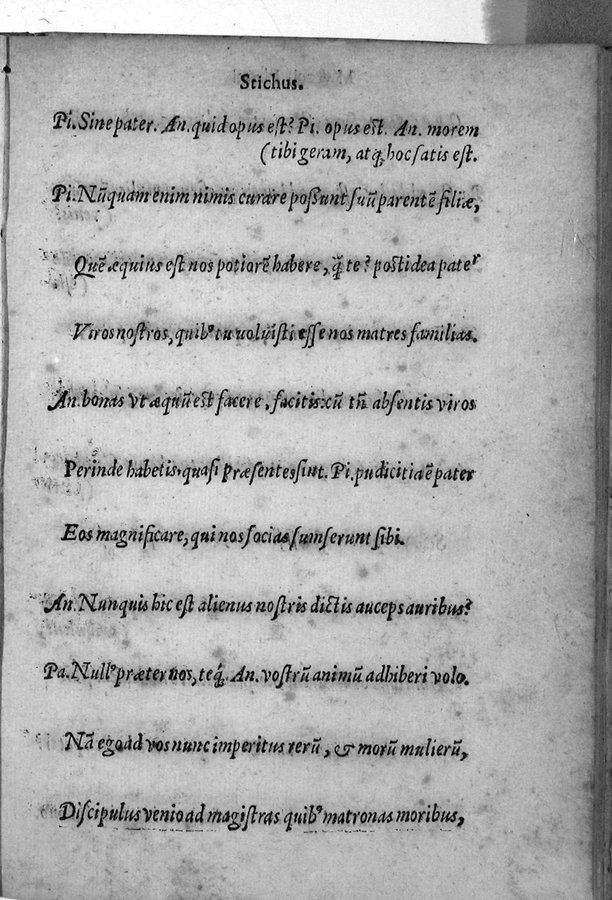 Stichus.
Pi. Sine pater. An. quid opus est? Pi. opus est. An. morem
(tibi geram, atq; hoc satis est.
Pi. Nūquam enim nimis curare possunt suū parentē filiæ,
Quē æquius est nos potiorē habere, q̃ te? postidea pater
Viros nostros, quib⁹ tu uoluisti esse nos matres familias.
An. bonas vt æquū est facere, facitis: cū tñ absentis viros
Perinde habetis, quasi præsentes sint. Pi. pudicitia ē pater
Eos magnificare, qui nos socias sumserunt sibi.
An. Nunquis hic est alienus nostris dictis auceps auribus?
Pa. Null⁹ præter nos, teq́;. An. vostrū animū adhiberi volo.
Nā ego ad vos nunc imperitus rerū, & morū mulierū,
Discipulus venio ad magistras quib⁹ matronas moribus,